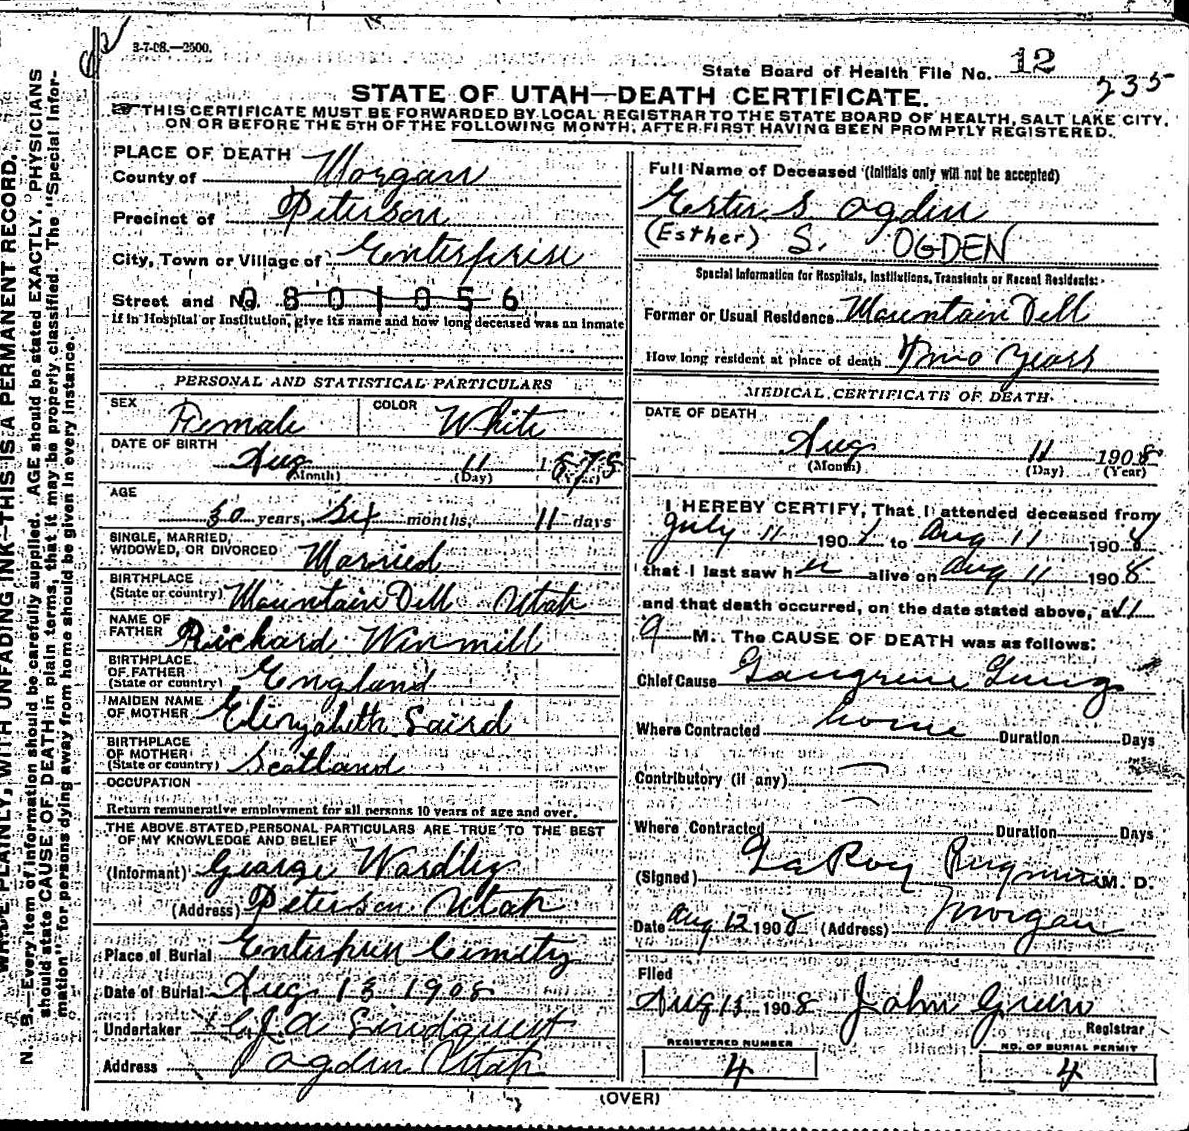 3-7-08.—2500.
State Board of Health File No. 12
235
STATE OF UTAH—DEATH CERTIFICATE.
☞ THIS CERTIFICATE MUST BE FORWARDED BY LOCAL REGISTRAR TO THE STATE BOARD OF HEALTH, SALT LAKE CITY,
ON OR BEFORE THE 5TH OF THE FOLLOWING MONTH, AFTER FIRST HAVING BEEN PROMPTLY REGISTERED.
N. B.—Every item of information should be carefully supplied. AGE should be stated EXACTLY. PHYSICIANS
should state CAUSE OF DEATH in plain terms, that it may be properly classified. The "Special Infor-
mation" for persons dying away from home should be given in every instance.
PLAINLY, WITH UNFADING INK—THIS IS A PERMANENT RECORD.
PLACE OF DEATH
County of Morgan
Precinct of Peterson
City, Town or Village of Enterprise
Street and No. 0801056
If in Hospital or Institution, give its name and how long deceased was an inmate
PERSONAL AND STATISTICAL PARTICULARS
SEX Female COLOR White
DATE OF BIRTH Aug 11 1878
(Month) (Day) (Year)
AGE
30 years, Six months, 11 days
SINGLE, MARRIED,
WIDOWED, OR DIVORCED Married
BIRTHPLACE
(State or country) Mountain Dell Utah
NAME OF
FATHER Richard Winmill
BIRTHPLACE
OF FATHER
(State or country) England
MAIDEN NAME
OF MOTHER Elizyabeth Saird
BIRTHPLACE
OF MOTHER
(State or country) Scotland
OCCUPATION
Return remunerative employment for all persons 10 years of age and over.
THE ABOVE STATED PERSONAL PARTICULARS ARE TRUE TO THE BEST
OF MY KNOWLEDGE AND BELIEF
(Informant) George Wardley
(Address) Peterson Utah
Place of Burial Enterprise Cimetry
Date of Burial Aug 13 1908
Undertaker C J A Lindquest
Address Ogden Utah
Full Name of Deceased (Initials only will not be accepted)
Ester S Ogden
(Esther) S. OGDEN
Special Information for Hospitals, Institutions, Transients or Recent Residents:
Former or Usual Residence Mountain Dell
How long resident at place of death Two Years
MEDICAL CERTIFICATE OF DEATH
DATE OF DEATH
Aug 11 1908
(Month) (Day) (Year)
I HEREBY CERTIFY, That I attended deceased from
July 11 1908 to Aug 11 1908
that I last saw her alive on Aug 11 1908
and that death occurred, on the date stated above, at 11
M. The CAUSE OF DEATH was as follows:
Chief Cause Gangrene Lung
Where Contracted home Duration Days
Contributory (if any)
Where Contracted Duration Days
(Signed) LaRoy M. D.
Date Aug 12 1908 (Address) Morgan
Filed
Aug 13 1908 John Green
Registrar
REGISTERED NUMBER
4
NO. OF BURIAL PERMIT
4
(OVER)